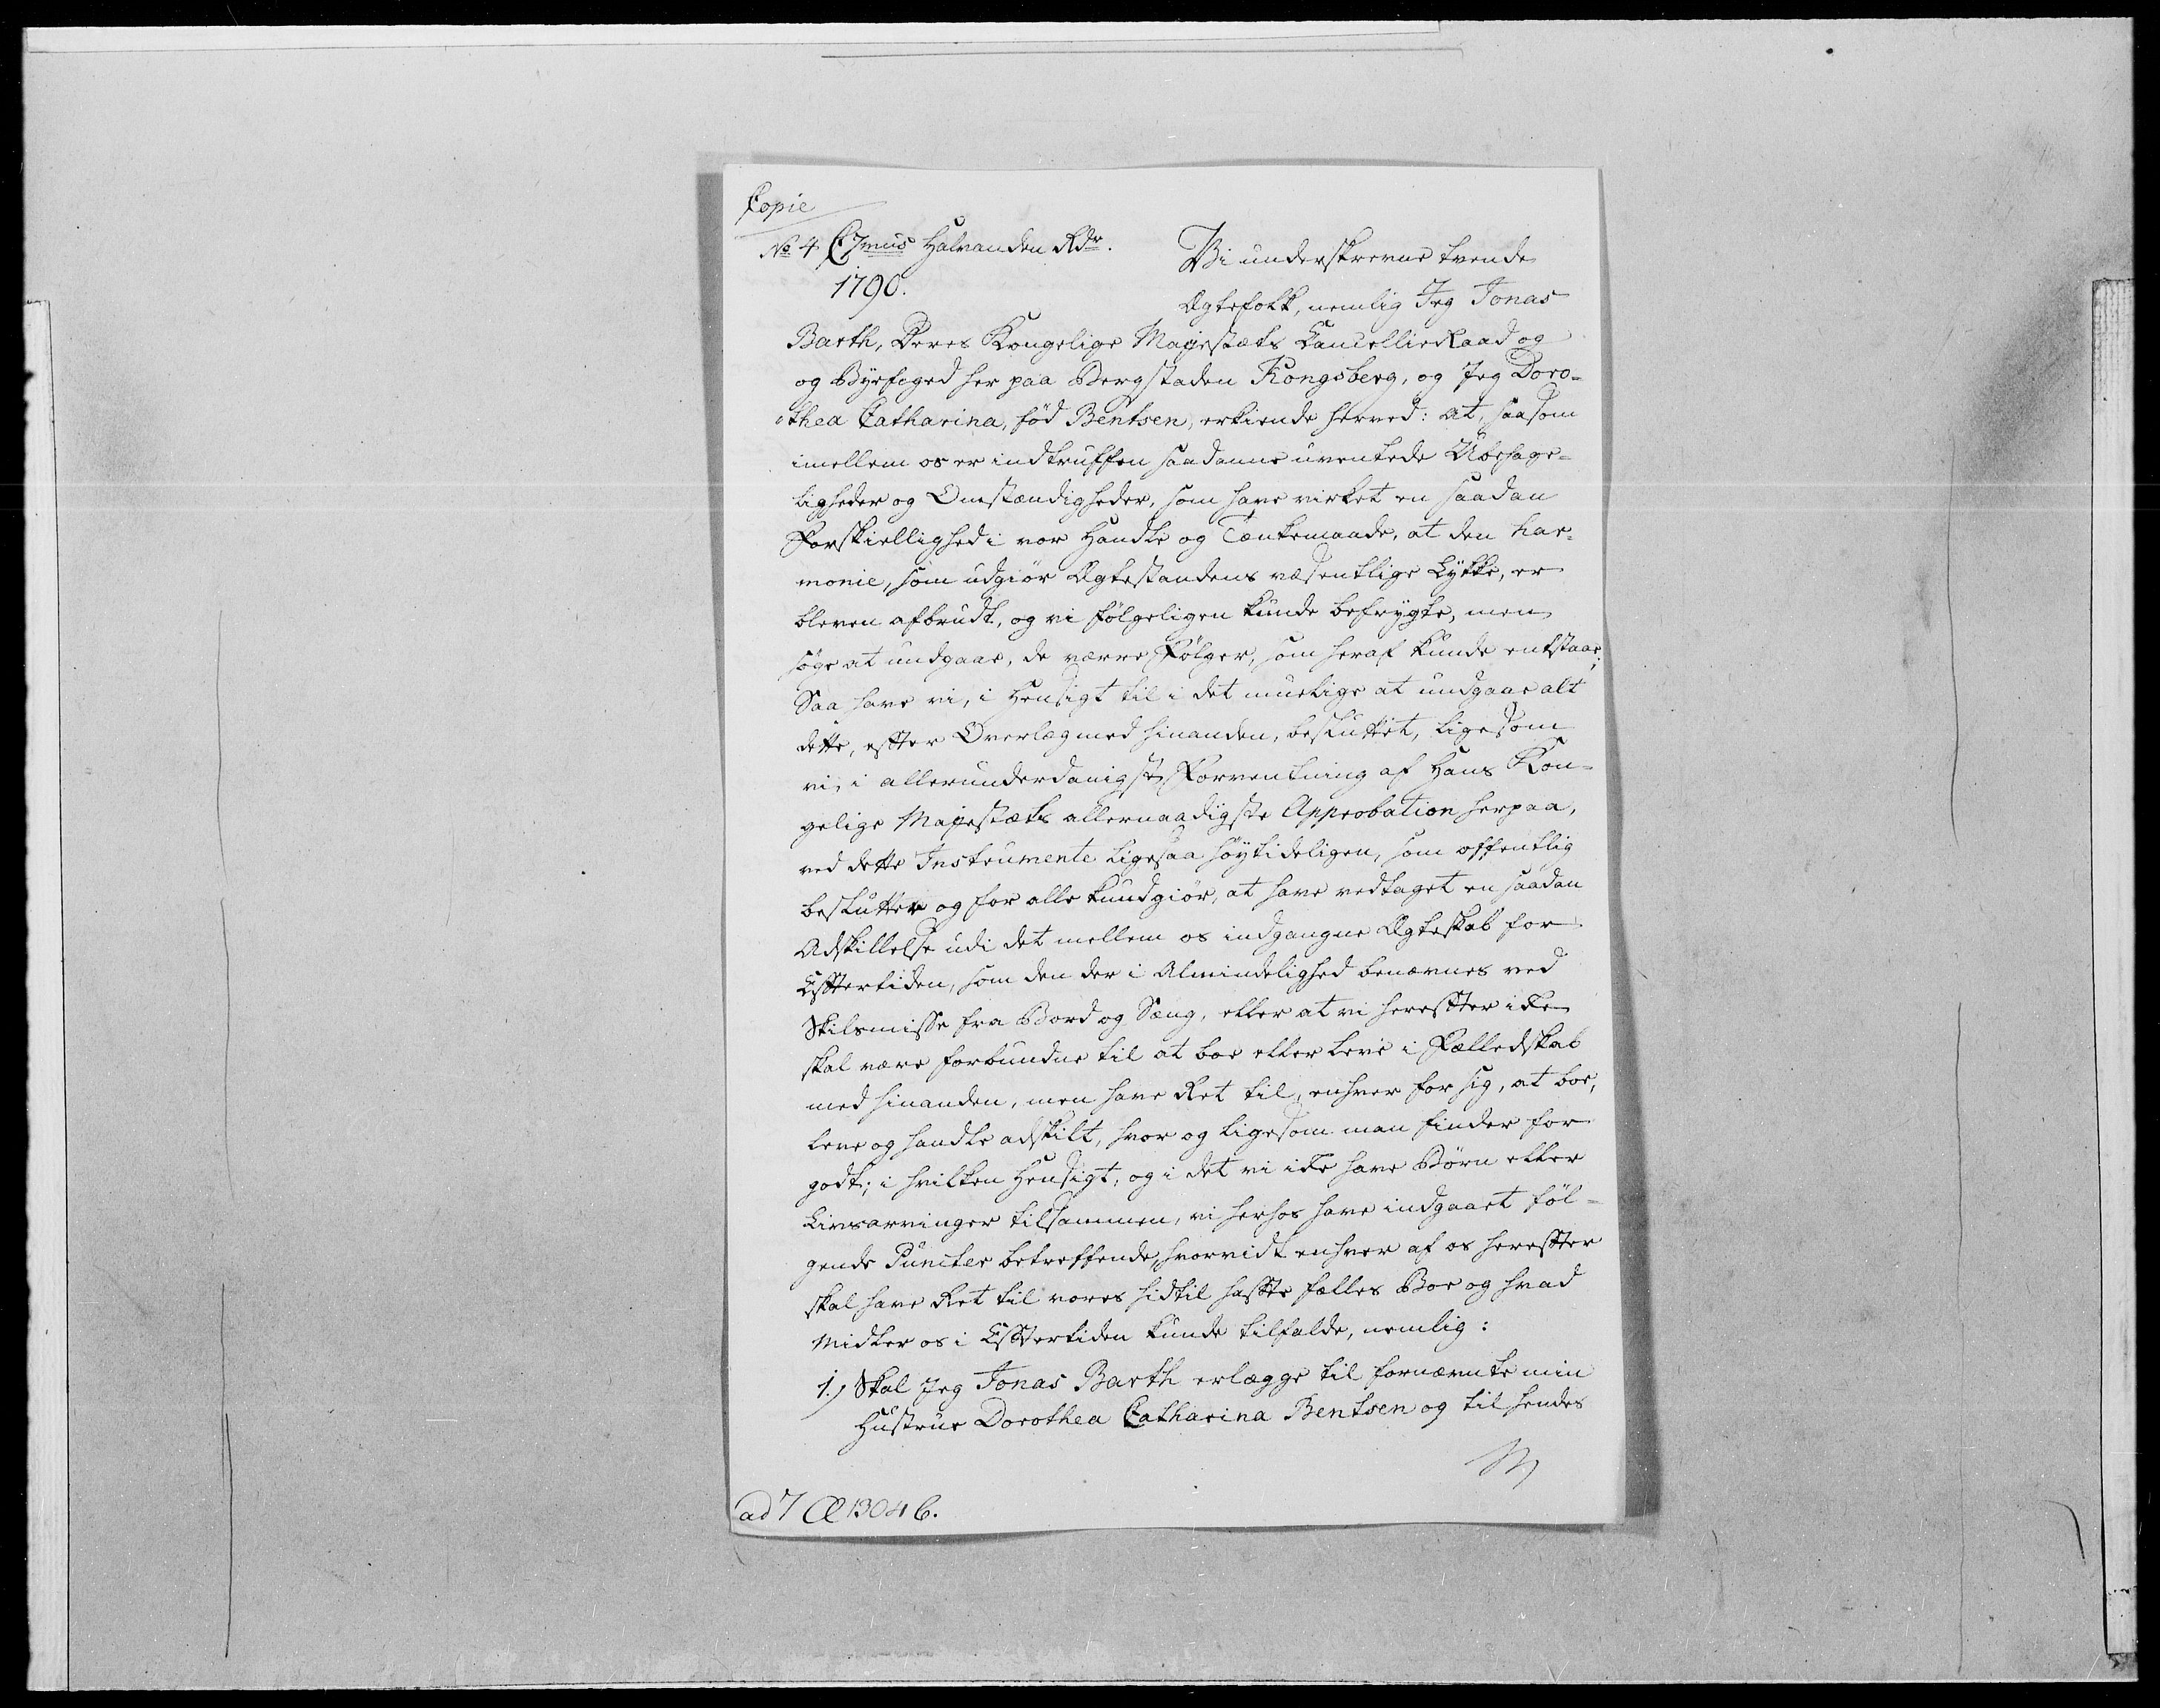 Copie
No 4 C 7mus Halvanden Rdr.
1790.
Vi underskrevne tvende
Ægtefolk, nemlig Jeg Jonas
Barth, Deres Kongelige Majestæts CancellieRaad og
og Byefoged her paa Bergstaden Kongsberg, og Jeg Doro-
thea Catharina, fød Bentsen, erkiende herved: at, saasom
imellem os er indtruffen saadanne uventede Ubehage-
ligheder og Omstændigheder, som have virket en saadan
Forskiellighed i vor Handle og Tænkemaade, at den har-
monie, som udgiør Ægtestandens væsentlige Lykke, er
bleven afbrudt, og vi følgeligen kunde befrygte, men
søge at undgaae, de værre Følger, som heraf kunde entstaae;
Saa have vi, i Hensigt til i det muelige at undgaae alt
dette, efter Overlæg med hinanden, besluttet, ligesom
vi, i allerunderdanigste Forventning af Hans Kon-
gelige Majestæts allernaadigste Approbation herpaa,
ved dette Instrumente ligesaa høytideligen, som offentlig
beslutter og for alle kundgiør, at have vedtaget en saadan
Adskillelse udi det mellem os indgangne Ægteskab for
Eftertiden, som den der i Almindelighed benævnes ved
Skilsmisse fra Bord og Sæng, eller at vi herefter ikke
skal være forbundne til at boe eller leve i Fælledskab
med hinanden, men have Ret til, enhver for sig, at boe,
leve og handle adskilt, hvor og ligesom man finder for
godt; i hvilken Hensigt, og i det vi ikke have Børn eller
Livsarvinger tilsammen, vi herhos have indgaaet føl-
gende Puncter betreffende, hvorvidt enhver af os herefter
skal have Ret til vores hidtil hafte fælles Boe og hvad
Midler os i Eftertiden kunde tilfalde, nemlig:
1.) Skal Jeg Jonas Barth erlægge til fornævnte min
Hustrue Dorothea Catharina Bentsen og til hendes
ad 7 Æ 1304 6.